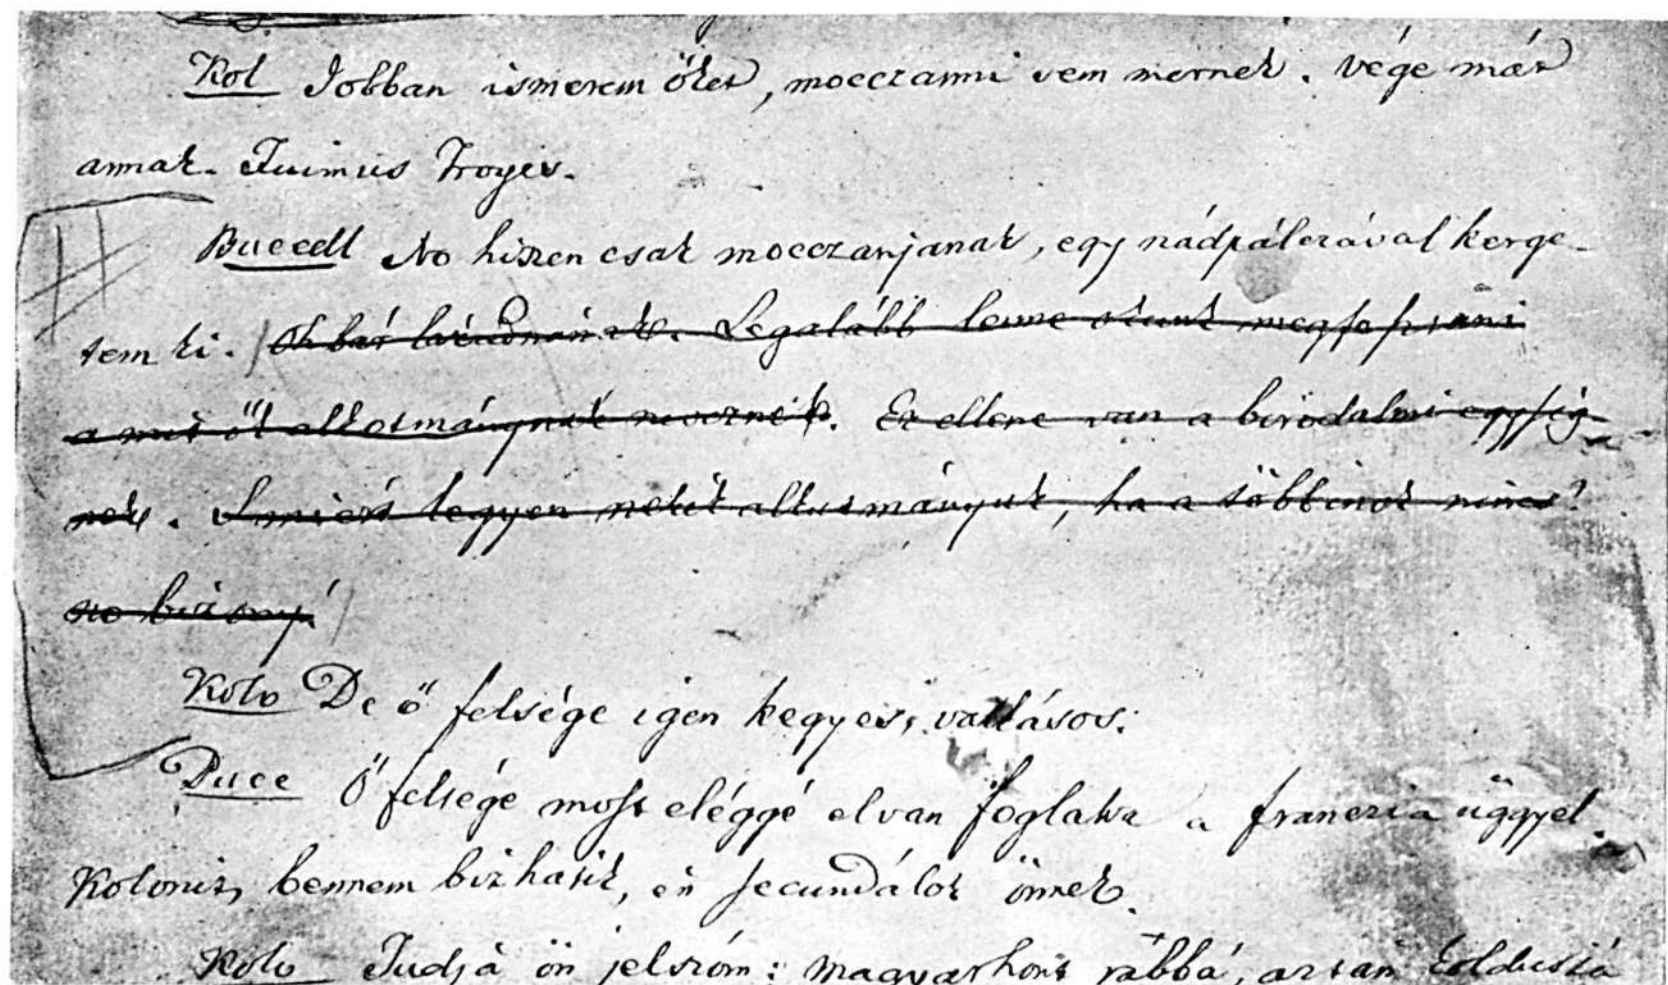 Kol Jobban ismerem őket, moczczanni sem mernek. Vége már
annak. Fuimus Troyes.
Buccell No hiszen csak mocczanjanak, egy nádpálczával kerge-
tem ki. Oh bár lázadnának. Legalább lenne okunk megfosztani
a mit ők alkotmánynak neveznek. Ez ellene van a birodalmi egység-
nek. S miért legyen nekik alkotmányuk, ha a többinek nincs?
no bizony!
Kolo De ő felsége igen kegyes, vallásos.
Bucc Ő felsége most eléggé elvan foglalva a franczia üggyel.
Kolonits, bennem bizhatik, én secundálok önnek.
Kolo Tudja ön jelszóm: Magyarhont rabbá, aztán koldussá